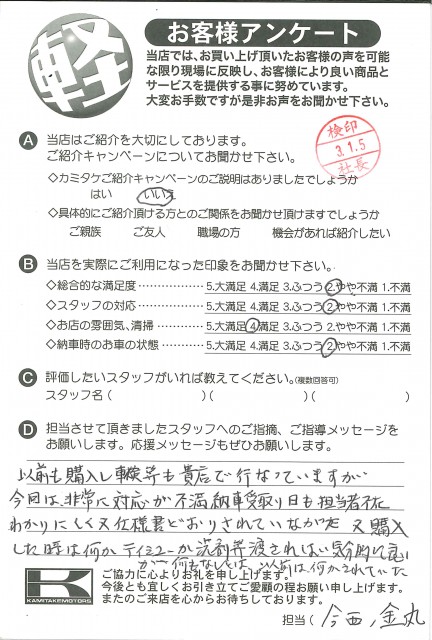 軽
お客様アンケート
当店では、お買い上げ頂いたお客様の声を可能
な限り現場に反映し、お客様により良い商品と
サービスを提供する事に努めています。
大変お手数ですが是非お声をお聞かせ下さい。
検印
3.1.5
社長
A 当店はご紹介を大切にしております。
ご紹介キャンペーンについてお聞かせ下さい。
◇カミタケご紹介キャンペーンのご説明はありましたでしょうか
はい いいえ
◇具体的にご紹介頂ける方とのご関係をお聞かせ頂けますでしょうか
ご親族 ご友人 職場の方 機会があれば紹介したい
B 当店を実際にご利用になった印象をお聞かせ下さい。
◇総合的な満足度 5.大満足 4.満足 3.ふつう 2.やや不満 1.不満
◇スタッフの対応 5.大満足 4.満足 3.ふつう 2.やや不満 1.不満
◇お店の雰囲気、清掃 5.大満足 4.満足 3.ふつう 2.やや不満 1.不満
◇納車時のお車の状態 5.大満足 4.満足 3.ふつう 2.やや不満 1.不満
C 評価したいスタッフがいれば教えてください。(複数回答可)
スタッフ名( )( )( )
D 担当させて頂きましたスタッフへのご指摘、ご指導メッセージを
お願いします。応援メッセージもぜひお願いします。
以前も購入し車検等も貴店で行なっていますが
今回は、非常に対応が不満 納車受取り日も担当者
わかりにくく 又仕様書どおりされていなかった 又購入
した時は何か ティシューか洗剤等渡されれば
が 何もなし 以前は何かされていた
K
KAMITAKEMOTORS
ご協力に心よりお礼を申し上げます。
今後とも宜しくお引き立てご愛顧の程お願い申し上げます。
またのご来店を心からお待ちしております。
担当( 今西、金丸